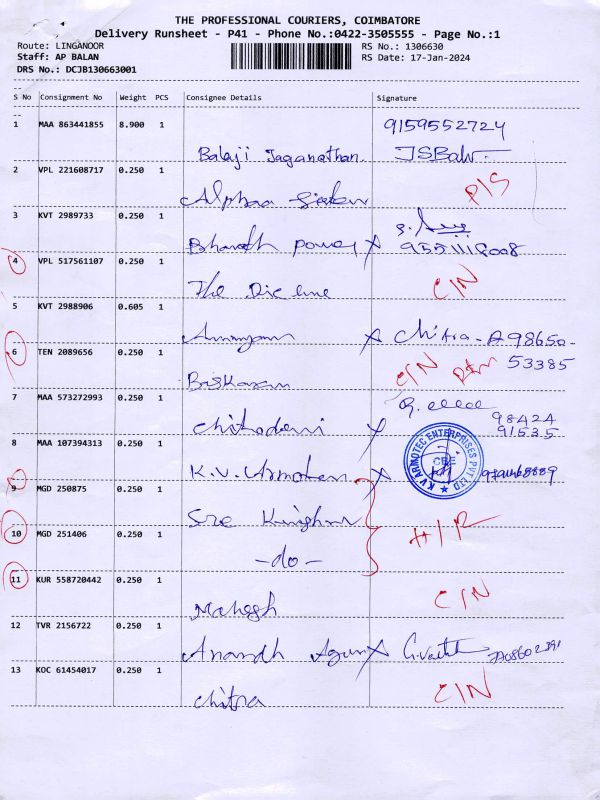 THE PROFESSIONAL COURIERS, COIMBATORE
Delivery Runsheet - P41 - Phone No.:0422-3505555 - Page No.:1
Route: LINGANOOR RS No.: 1306630
Staff: AP BALAN RS Date: 17-Jan-2024
DRS No.: DCJB130663001
S No Consignment No Weight PCS Consignee Details Signature
1 MAA 863441855 8.900 1 9159552724
Balaji Jaganathan
2 VPL 221608717 0.250 1 P/S
Alphaa
3 KVT 2989733 0.250 1
Bharath power X 9551118008
4 VPL 517561107 0.250 1 C/N
The Die line
5 KVT 2988906 0.605 1
X Chitra - A 98650-
6 TEN 2089656 0.250 1 C/N 53385
Baskaran
7 MAA 573272993 0.250 1 98424
Chitradevi X 91535
8 MAA 107394313 0.250 1 K.V. ARMOTEC ENTERPRISES PVT LTD CBE
K.V. Armotec X
9 MGD 250875 0.250 1
Sre
10 MGD 251406 0.250 1 H/R
-do-
11 KUR 558720442 0.250 1 C/N
Mahesh
12 TVR 2156722 0.250 1
Anandh X
13 KOC 61454017 0.250 1 C/N
Chitra